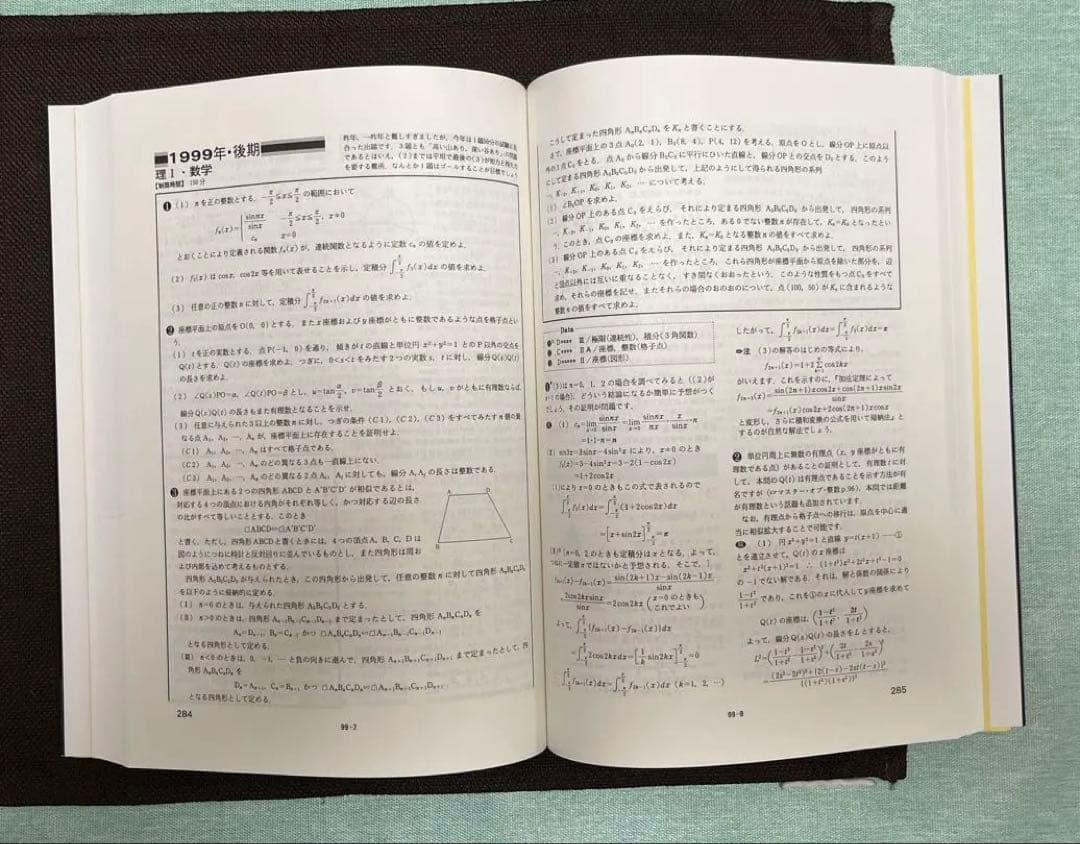 1999年・後期
理Ⅰ・数学
【制限時間】150分
昨年、一昨年と難しすぎましたが、今年は1題50分の試験に
❶ (1) nを正の整数とする．−π/2≦x≦π/2 の範囲において
fₙ(x)= sin nx/sin x −π/2≦x≦π/2, x≠0
cₙ x=0
とおくことにより定義される関数 fₙ(x) が，連続関数となるように定数 cₙ の値を定めよ．
(2) f₃(x) は cosx, cos2x 等を用いて表せることを示し，定積分∫f₃(x)dx の値を求めよ．
(3) 任意の正の整数nに対して，定積分∫f₂ₙ₊₁(x)dx の値を求めよ．
❷ 座標平面上の原点をO(0, 0)とする．またx座標およびy座標がともに整数であるような点を格子点とい
う．
(1) tを正の実数とする．点P(−1, 0)を通り，傾きがtの直線と単位円 x²+y²=1 とのP以外の交点を
Q(t)とする．Q(t)の座標を求めよ．つぎに，0<s<tをみたす2つの実数s, tに対し，線分Q(s)Q(t)
の長さを求めよ．
(2) ∠Q(s)PO=α, ∠Q(t)PO=βとし，u=tan α/2, v=tan β/2 とおく．もしu, vがともに有理数ならば，
線分Q(s)Q(t)の長さもまた有理数となることを示せ．
(3) 任意に与えられた3以上の整数nに対し，つぎの条件(C1), (C2), (C3)をすべてみたすn個の異
なる点 A₁, A₂, …, Aₙ が，座標平面上に存在することを証明せよ．
(C1) A₁, A₂, …, Aₙ はすべて格子点である．
(C2) A₁, A₂, …, Aₙ のどの異なる3点も一直線上にない．
(C3) A₁, A₂, …, Aₙ のどの異なる2点 Aᵢ, Aⱼ に対しても，線分 AᵢAⱼ の長さは整数である．
❸ 座標平面上にある2つの四角形ABCDとA'B'C'D'が相似であるとは，
対応する4つの頂点における内角がそれぞれ等しく，かつ対応する辺の長さ
の比がすべて等しいこととする．このとき
□ABCD∽□A'B'C'D'
と書く．ただし，四角形ABCDと書くときには，4つの頂点A, B, C, Dは
図のようにつねに時計と反対回りに並んでいるものとし，また四角形は周お
よび内部を込めて考えるものとする．
A
D
B
C
四角形 A₀B₀C₀D₀ が与えられたとき，この四角形から出発して，任意の整数nに対して四角形 AₙBₙCₙDₙ
を以下のように帰納的に定める．
(ⅰ) n=0のときは，与えられた四角形 A₀B₀C₀D₀ とする．
(ⅱ) n>0のときは，四角形 Aₙ₋₁Bₙ₋₁Cₙ₋₁Dₙ₋₁ まで定まったとして，四角形 AₙBₙCₙDₙ を
Aₙ=Dₙ₋₁, Bₙ=Cₙ₋₁ かつ □AₙBₙCₙDₙ∽□Aₙ₋₁Bₙ₋₁Cₙ₋₁Dₙ₋₁
となる四角形として定める．
(ⅲ) n<0のときは，0, −1, … と負の向きに進んで，四角形 Aₙ₊₁Bₙ₊₁Cₙ₊₁Dₙ₊₁ まで定まったとして，四
角形 AₙBₙCₙDₙ を
Dₙ=Aₙ₊₁, Cₙ=Bₙ₊₁ かつ □AₙBₙCₙDₙ∽□Aₙ₊₁Bₙ₊₁Cₙ₊₁Dₙ₊₁
となる四角形として定める．
284
99-2
こうして定まった四角形 AₙBₙCₙDₙ を Kₙ と書くことにする．
さて，座標平面上の3点 A₀(2, 1), B₀(8, 4), P(4, 12) を考える．原点をOとし，線分OP上に原点以
外の1点C₀をとる．点A₀から線分B₀C₀に平行にひいた直線と，線分OPとの交点をD₀とする．このよう
にして定まる四角形 A₀B₀C₀D₀ から出発して，上記のようにして得られる四角形の系列
…, K₋₂, K₋₁, K₀, K₁, K₂, … について考える．
(1) ∠B₀OPを求めよ．
(2) 線分OP上のある点C₀をえらび，それにより定まる四角形 A₀B₀C₀D₀ から出発して，四角形の系列
…, K₋₂, K₋₁, K₀, K₁, K₂, … を作ったところ，ある0でない整数nが存在して，Kₙ=K₀となったとい
う．このとき，点C₀の座標を求めよ．また，Kₙ=K₀となる整数nの値をすべて求めよ．
(3) 線分OP上のある点C₀をえらび，それにより定まる四角形 A₀B₀C₀D₀ から出発して，四角形の系列
…, K₋₂, K₋₁, K₀, K₁, K₂, … を作ったところ，これら四角形が座標平面から原点を除いた部分を，辺
と頂点以外には互いに重なることなく，すき間なくおおったという．このような性質をもつ点C₀をすべて
求め，それらの座標を記せ．またそれらの場合のおのおのについて，点(100, 50)がKₙに含まれるような
整数nの値をすべて求めよ．
Data
Ⅲ/極限(連続性)，積分(3角関数)
ⅡA/座標，整数(格子点)
Ⅱ/座標(図形)
❶ (3)はn=0, 1, 2の場合を調べてみると((2)が
n=1の場合)，どういう結論になるか簡単に予想がつく
でしょう．その証明が問題です．
(1) cₙ=lim sin nx/sin x=lim sin nx/nx・x/sin x・n
=1・1・n=n
(2) sin3x=3sinx−4sin³x により，x≠0のとき
f₃(x)=3−4sin²x=3−2(1−cos2x)
=1+2cos2x
(1)によりx=0のときもこの式で表されるので
∫f₃(x)dx=∫(1+2cos2x)dx
=[x+sin2x]=π
よって，∫{f₂ₖ₊₁(x)−f₂ₖ₋₁(x)}dx
=∫2cos2kx dx=[1/k sin2kx]=0
∫f₂ₖ₊₁(x)dx=∫f₂ₖ₋₁(x)dx (k=1, 2, …)
したがって，∫f₂ₙ₊₁(x)dx=∫f₁(x)dx=π
➡注 (3)の解答のはじめの等式により，
f₂ₙ₊₁(x)=1+2Σcos2kx
がいえます．これを示すのに，「加法定理によって
=f₂ₙ₊₁(x)cos2x+cos(2n+1)x cosx
と変形し，さらに積和変換の公式を用いて帰納法」と
するのが自然な解法でしょう．
❷ 単位円周上に無数の有理点(x, y座標がともに有
理数である点)があることの証明として，有理数tに対
して，本問のQ(t)は有理点であることを示す方法が有
名ですが(☞マスター・オブ・整数p.96)，本問では距離
が有理数という話題も追加されています．
なお，有理点から格子点への移行は，原点を中心に適
当に相似拡大することで可能です．
(1) 円 x²+y²=1 と直線 y=t(x+1) ……①
とを連立させて，Q(t)のx座標は
x²+t²(x+1)²=1 ∴ (1+t²)x²+2t²x+t²−1=0
の−1でない解である．それは，解と係数の関係により
1−t²/1+t² であり，これを①のxに代入してy座標を求めて
Q(t)の座標は，(1−t²/1+t², 2t/1+t²)
よって，線分Q(s)Q(t)の長さをLとすると，
L²=(1−s²/1+s²−1−t²/1+t²)²+(2s/1+s²−2t/1+t²)²
285